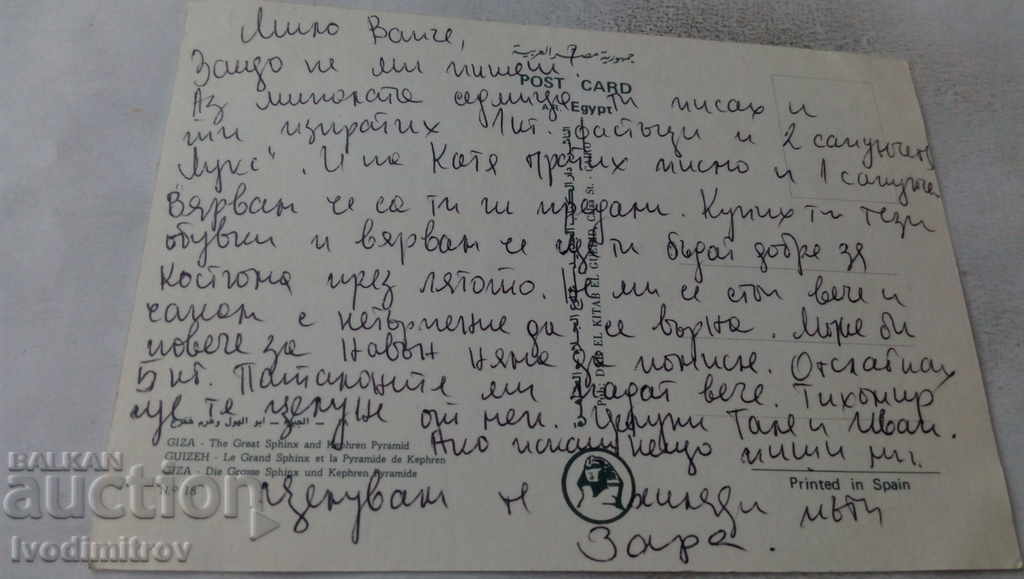 Мило Ванче,
Защо не ми пишеш?
جمهورية مصر العربية
POST CARD
A. R. Egypt
Аз миналата седмица ти писах и
ти изпратих 1 кг. фастъци и 2 сапунчета
Лукс". И на Катя пратих писмо и 1 сапунче
Вярвам че са ти ги предали. Купих ти тези
обувки и вярвам че ще ти бъдат добре за
костюма през лятото. Не ми се стои вече и
чакам с нетърпение да се върна. Може би
повече за няма да пиша.
5 кг. Панталоните ми падат вече. Тихомир
ще те целуне от мен. Целуни Таня и Иван.
Ако искаш нещо пиши ми.
GIZA - The Great Sphinx and Kephren Pyramid
GUIZEH - Le Grand Sphinx et la Pyramide de Kephren
GIZA - Die Grosse Sphinx und Kephren Pyramide
Printed in Spain
Целувам те хиляди пъти
Зара.
BALKAN
auction
Ivodimitrov